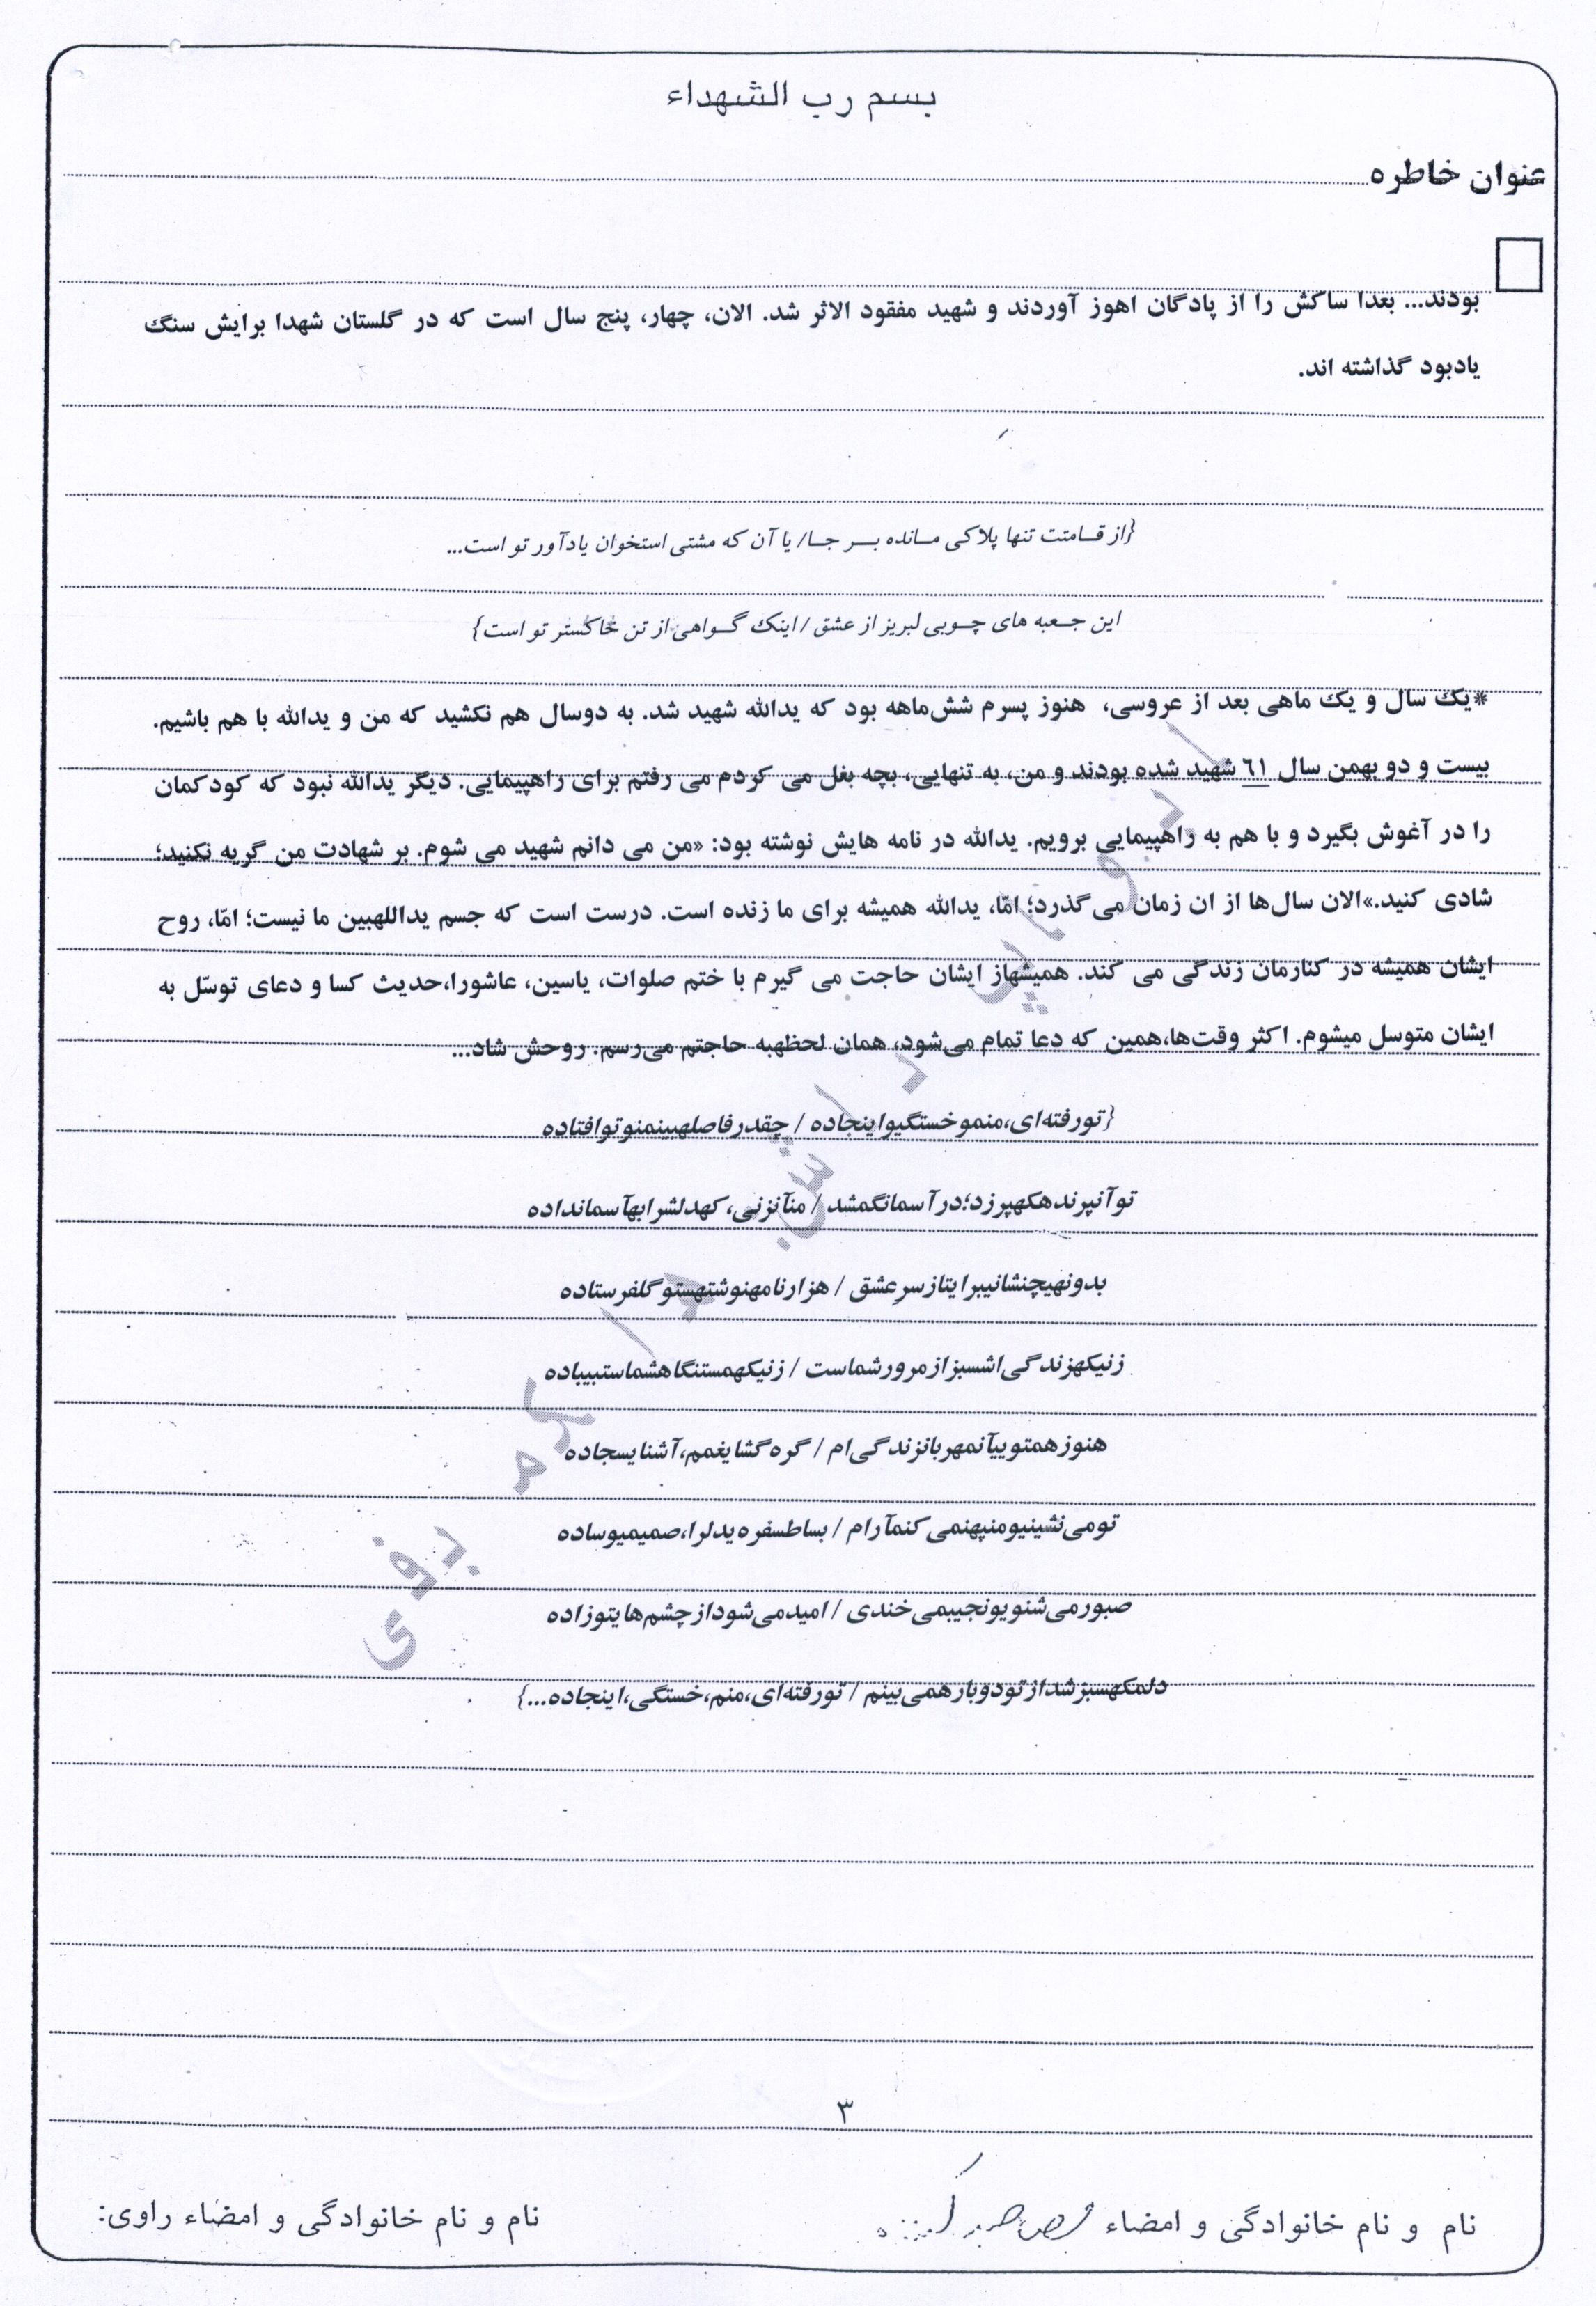 بسم رب الشهداء
عنوان خاطره
بودند... بعدا ساکش را از پادگان اهوز آوردند و شهید مفقود الاثر شد. الان، چهار، پنج سال است که در گلستان شهدا برایش سنگ
یادبود گذاشته اند.
{از قـامتت تنها پلاکی مـانده بـر جـا/ یا آن که مشتی استخوان یادآور تو است...
این جـعبه های چـوبی لبریز از عشق / اینک گـواهی از تن خاکستر تو است}
*یک سال و یک ماهی بعد از عروسی، هنوز پسرم شش‌ماهه بود که یدالله شهید شد. به دوسال هم نکشید که من و یدالله با هم باشیم.
بیست و دو بهمن سال ٦١ شهید شده بودند و من، به تنهایی، بچه بغل می کردم می رفتم برای راهپیمایی. دیگر یدالله نبود که کودکمان
را در آغوش بگیرد و با هم به راهپیمایی برویم. یدالله در نامه هایش نوشته بود: «من می دانم شهید می شوم. بر شهادت من گریه نکنید؛
شادی کنید.»الان سال‌ها از ان زمان می‌گذرد؛ امّا، یدالله همیشه برای ما زنده است. درست است که جسم یداللهبین ما نیست؛ امّا، روح
ایشان همیشه در کنارمان زندگی می کند. همیشهاز ایشان حاجت می گیرم با ختم صلوات، یاسین، عاشورا،حدیث کسا و دعای توسّل به
ایشان متوسل میشوم. اکثر وقت‌ها،همین که دعا تمام می‌شود، همان لحظهبه حاجتم می‌رسم. روحش شاد...
{تورفته‌ای،منموخستگیواینجاده / چقدرفاصلهبینمنوتوافتاده
توآنپرندهکهپرزد؛درآسمانگمشد / منآنزنی،کهدلشرابهآسمانداده
بدونهیچنشانیبرایتازسرِعشق / هزارنامهنوشتهستوگلفرستاده
زنیکهزندگی‌اشسبزازمرورشماست / زنیکهمستنگاهشماستبیباده
هنوزهمتوییآنمهربانزندگی‌ام / گره‌گشایغمم،آشنایسجاده
تومی‌نشینیومنپهنمی‌کنمآرام / بساطسفره‌یدلرا،صمیمیوساده
صبورمی‌شنویونجیبمی‌خندی / امیدمی‌شودازچشم‌هایتوزاده
دلمکهسبزشدازتودوبارهمی‌بینم / تورفته‌ای،منم،خستگی،اینجاده...}
۳
نام و نام خانوادگی و امضاء
نام و نام خانوادگی و امضاء راوی: